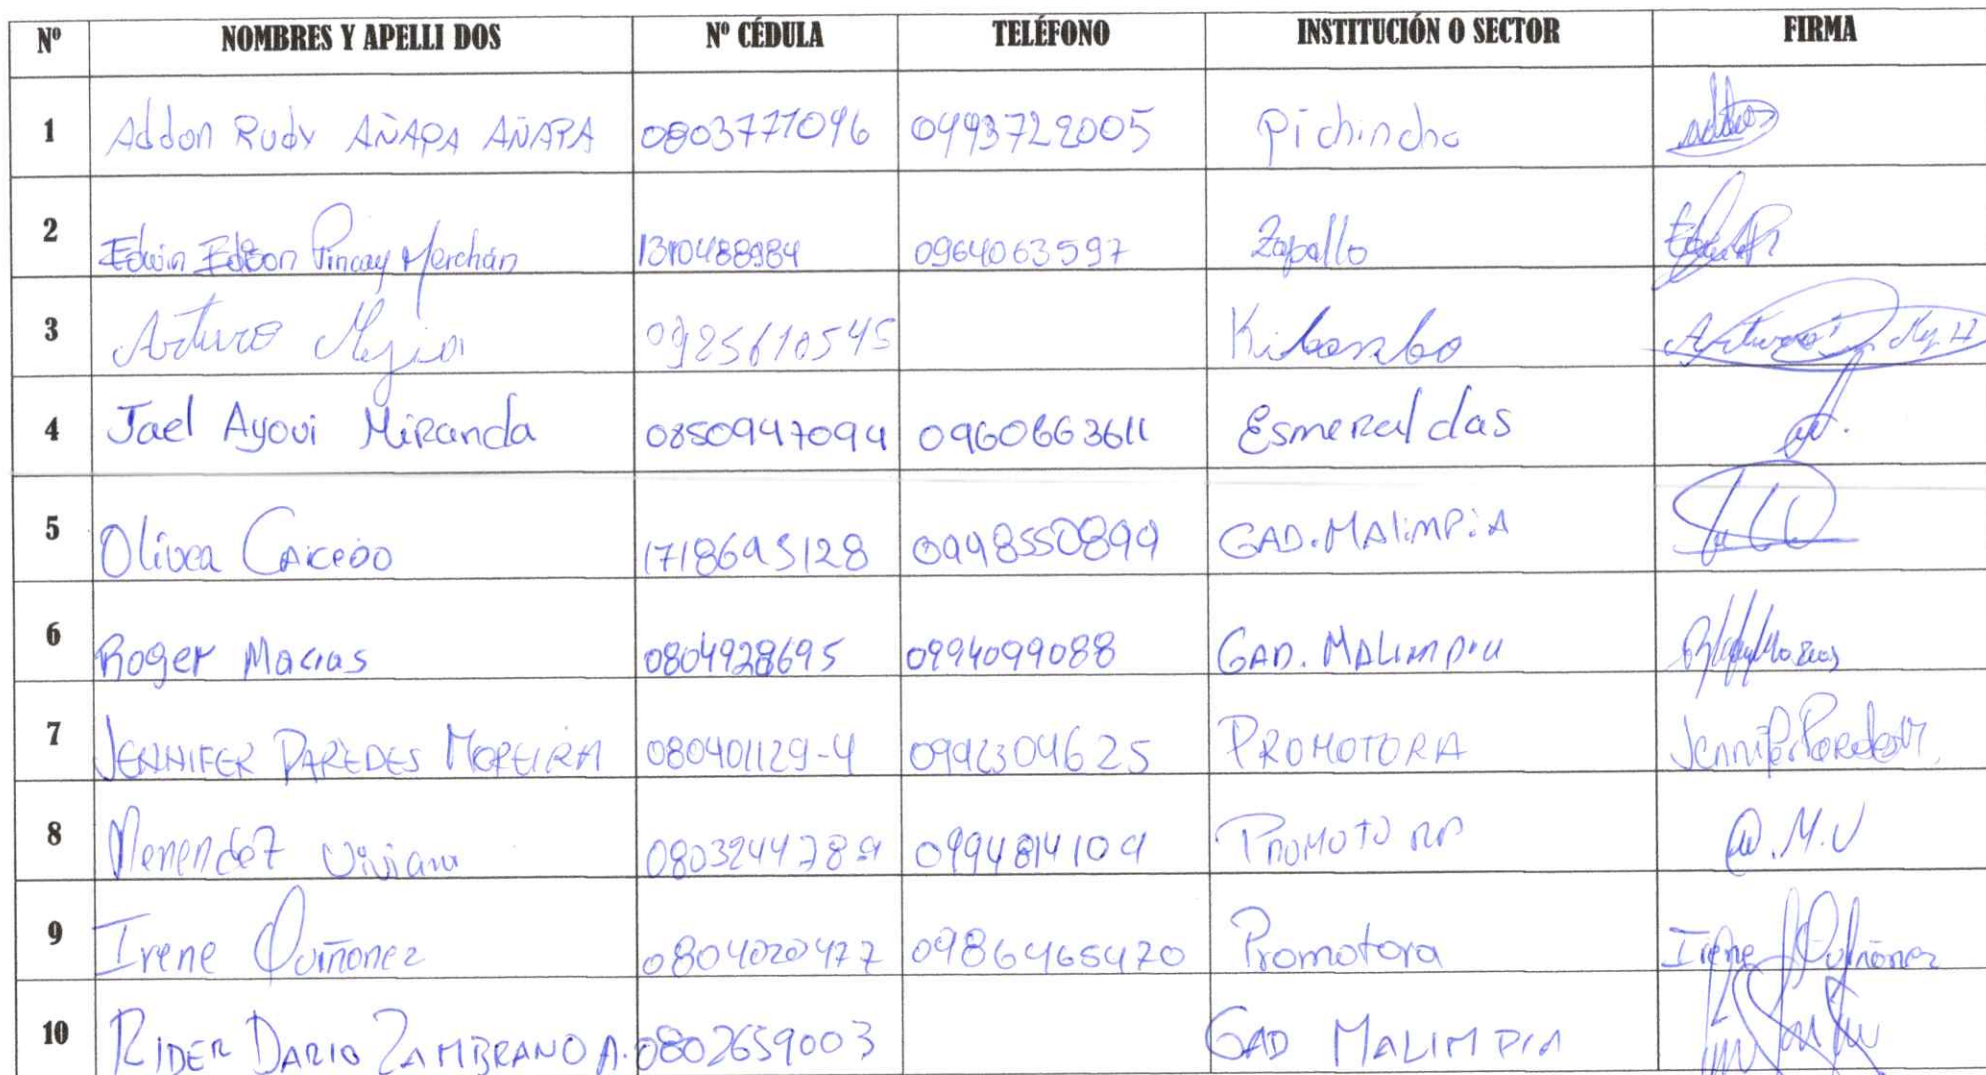 Nº NOMBRES Y APELLI DOS Nº CÉDULA TELÉFONO INSTITUCIÓN O SECTOR FIRMA
1 Addon Rudy AÑAPA AÑAPA 0803771096 0993722005 Pichincha
2 Edwin Edson Pincay Merchán 1310488984 0964063597 Zapallo
3 Arturo Mejia 0925610545 Kibambo Arturo Mejia
4 Jael Ayovi Miranda 0850947094 0960663611 Esmeraldas
5 Olivea CAICEDO 1718695128 0998550899 GAD.MALIMPIA
6 Roger Macias 0804928695 0994099088 GAD. MALIMPIA
7 JENNIFER PAREDES MOREIRA 080401129-4 0992304625 PROMOTORA Jennifer Paredes M.
8 Menendez Viviana 0994814109 PROMOTORA @.M.V
9 Irene Quiñonez 0804020477 0986465470 Promotora Irene Quiñonez
10 RIDER DARIO ZAMBRANO A. 0802659003 GAD MALIMPIA